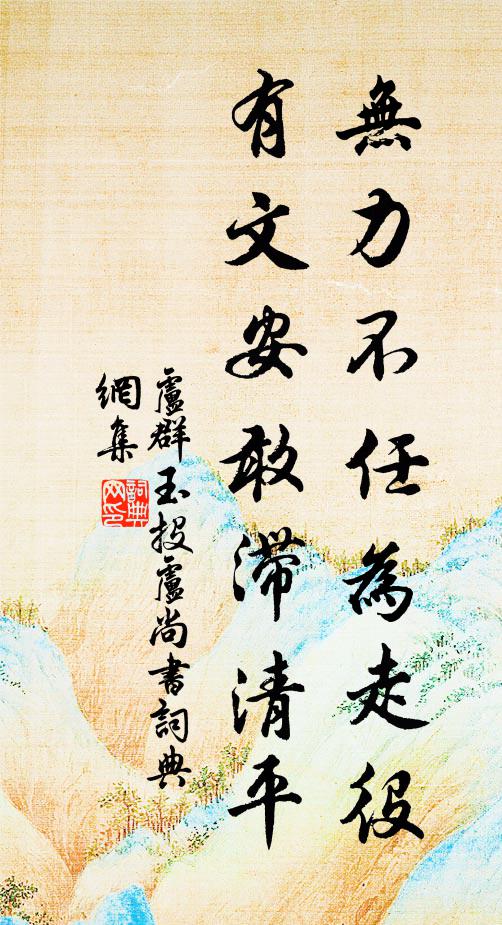 無力不任為走役
有文安敢滯清平
盧群玉投盧尚書詞典
網集
詞典
网印